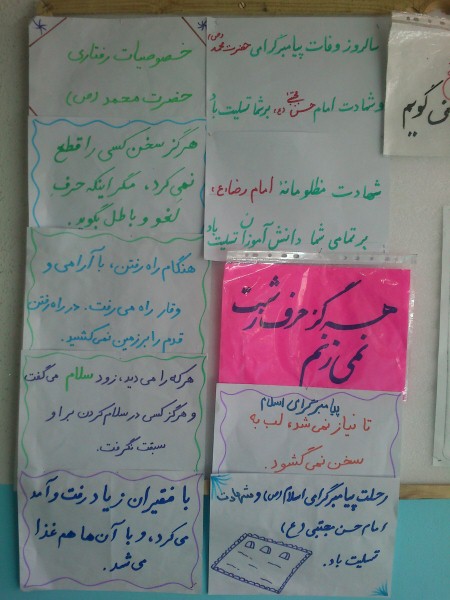 خصوصیات رفتاری
حضرت محمد (ص)
هرگز سخن کسی را قطع
نمی کرد، مگر اینکه حرف
لغو و باطل بگوید.
هنگام راه رفتن، با آرامی و
وقار راه می رفت. در راه رفتن
قدم را بر زمین نمی کشید.
هر که را می دید، زود سلام می گفت
و هرگز کسی در سلام کردن بر او
سبقت نگرفت.
با فقیران زیاد رفت و آمد
می کرد، و با آن ها هم غذا
می شد.
سالروز وفات پیامبر گرامی حضرت محمد (ص)
و شهادت امام حسن مجتبی (ع) بر شما تسلیت باد
شهادت مظلومانهٔ امام رضا (ع)
بر تمامی شما دانش آموزان تسلیت باد
هرگز حرف زشت
نمی زنم
پیامبر گرای اسلام
تا نیاز نمی شد، لب به
سخن نمی گشود.
رحلت پیامبر گرای اسلام (ص) و شهادت
امام حسن مجتبی (ع)
تسلیت باد.
گوییم